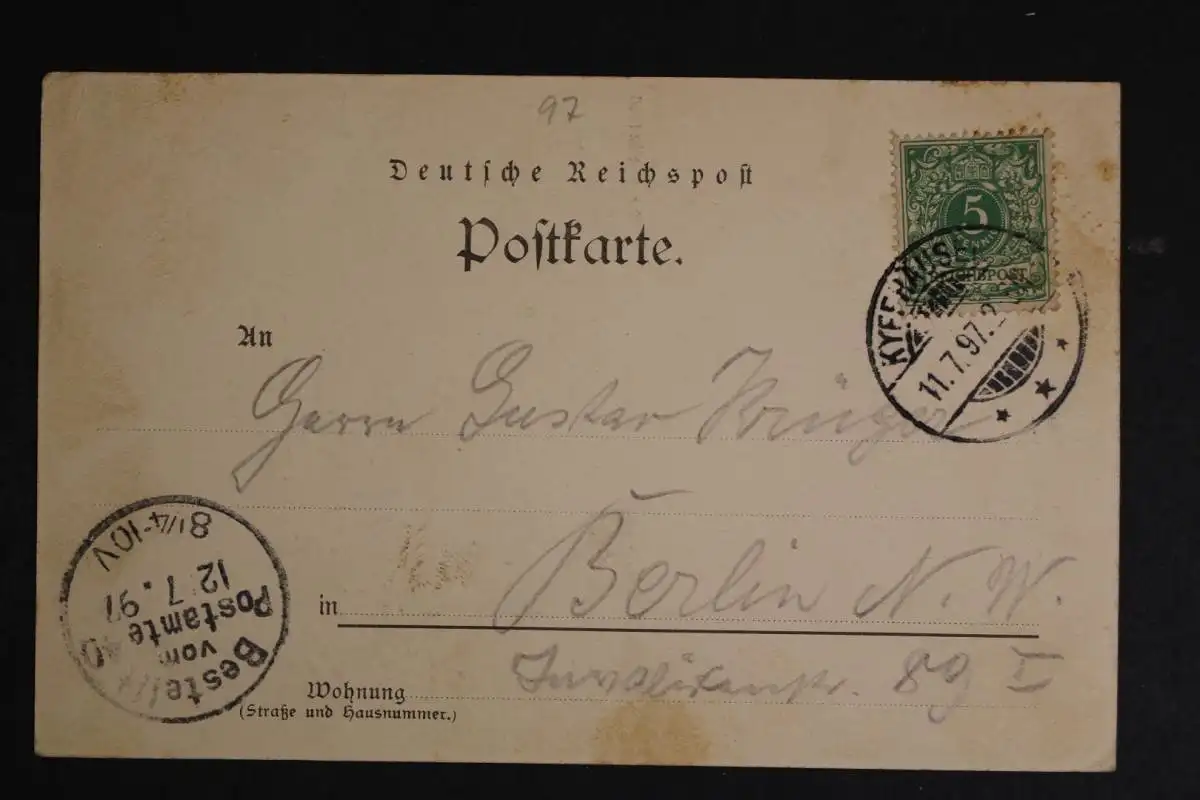 97
Deutſche Reichspoſt
Poſtkarte.
5
PFENNIG
REICHSPOST
KYFFHÄUSER
11.7.97.
An
Herrn Gustav Krüger
in Berlin N. W.
Invalidenstr. 89 I
Wohnung
(Straße und Hausnummer.)
Bestellt
vom
Postamte
40
12 7. 97
8 1/4-10V